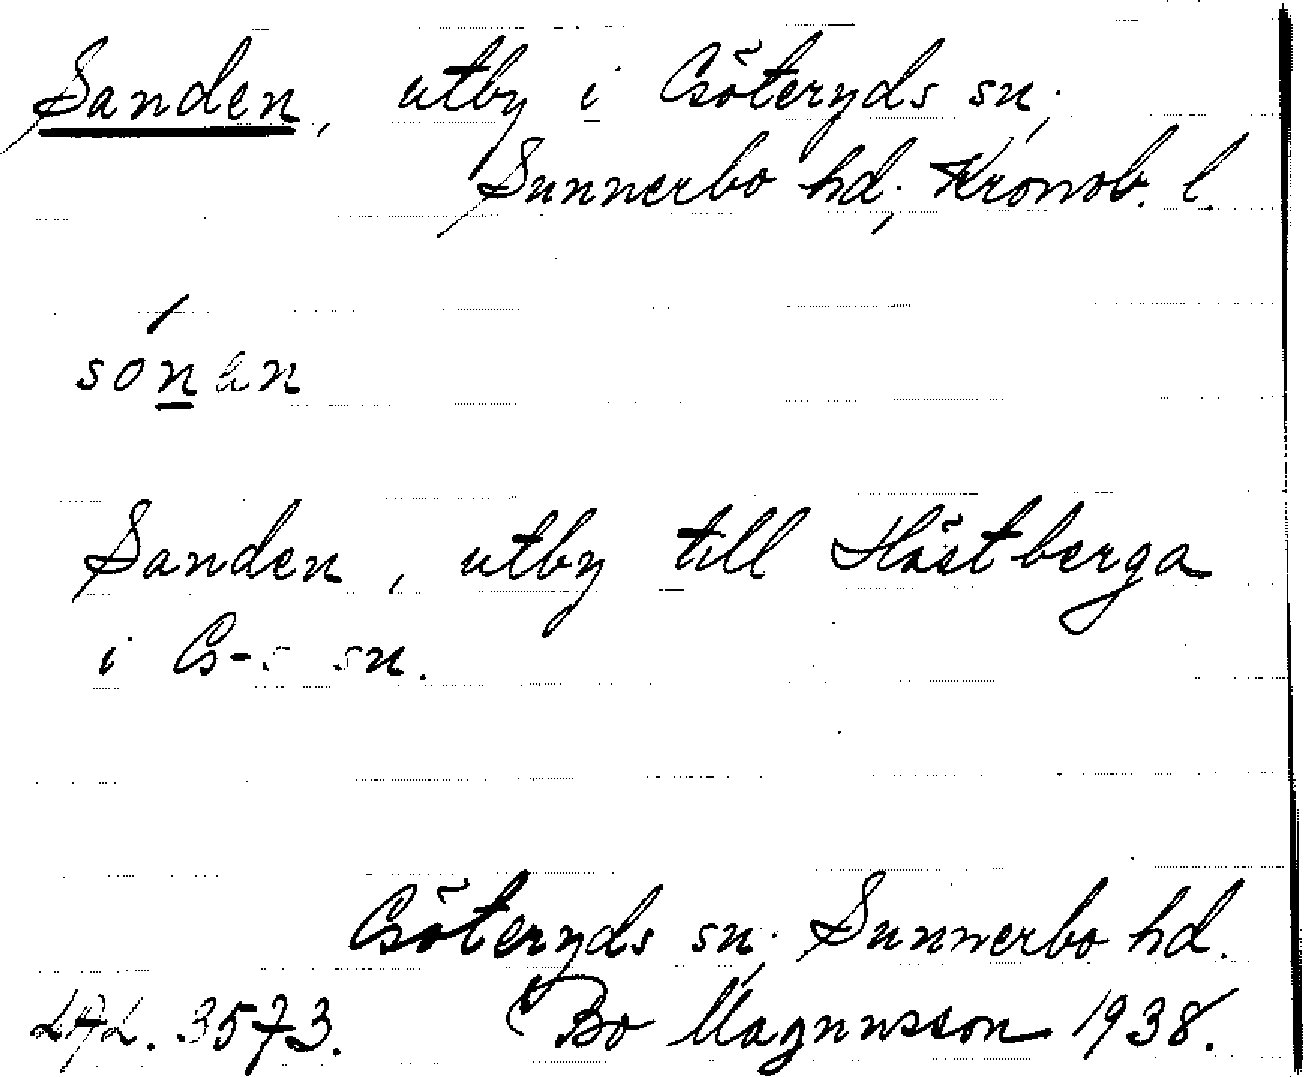 Sanden, utby i Göteryds sn,
Sunnerbo hd, Kronob. l.
Sanden, utby till Hästberga
i G-s sn.
Göteryds sn, Sunnerbo hd.
LAL. 3573. Bo Magnusson 1938.